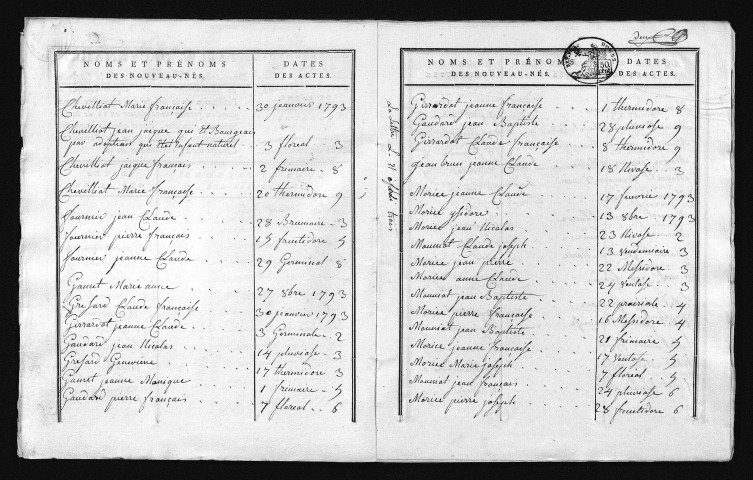 NOMS ET PRÉNOMS DES NOUVEAU-NÉS. DATES DES ACTES.
Chevilliot Marie francaise . . . . 30 janvier 1793
Chevilliot jean jaque qui Est Bourgeois
par adoption qui Etoit Enfant naturel . . 3 floréal . . 3
Chevilliot jaque francais . . . . 2 frimaire . 8
Chevilliat Marie françoise . . . . 20 thermidore 9
fournier jean Claude . . . . 28 Brumaire . 3
fournier pierre francois . . . . 15 fruitsdore 5
fournier jeanne Claude . . . . 29 Germinal 8
Gamet Marie anne . . . . 27 8bre 1793
Gresard Claude francaise . . . . 30 janvier 1793
Girrardot jeanne Claude . . . . 3 Germinale . 2
Gaudard jean Nicolas . . . . 14 pluviose . 3
Gresard Genevieve . . . . 17 thermidore 3
Gamet jeanne Monique . . . . 1 frimaire . . 5
Gaudard pierre français . . . . 7 floréal . . 6
NOMS ET PRÉNOMS DES NOUVEAU-NÉS. DATES DES ACTES.
Girrardot jeanne francaise . . . . 1 thermidore 8
Gaudard jean Baptiste . . . . 28 pluviose 9
Girrardot Claude francaise . . . . 8 thermidore 9
jeanbrun jeanne Claude . . . . 18 Nivose . 3
Morice jeanne Claude . . . . 17 feuvrie 1793
Morice ysidore . . . . 13 8bre . 1793
Morice jean Nicolas . . . . 23 Nivose . 2
Mouniot Claude joseph . . . . 13 vendemiaire 3
Morice jean pierre . . . . 22 Messidore . 3
Morice anne Claude . . . . 24 ventose . 3
Mouniot jean Baptiste . . . . 22 prairiale . 4
Morice pierre françoise . . . . 16 Messidore . 4
Mouniot jean Baptiste . . . . 21 frimaire 5
Morice jeanne francoise . . . . 17 ventose . 5
Morice Marie joseph . . . . 7 floréal . 5
Mouniot jean français . . . . 24 pluviose 6
Morice pierre joseph . . . . 28 fruitsdore 6